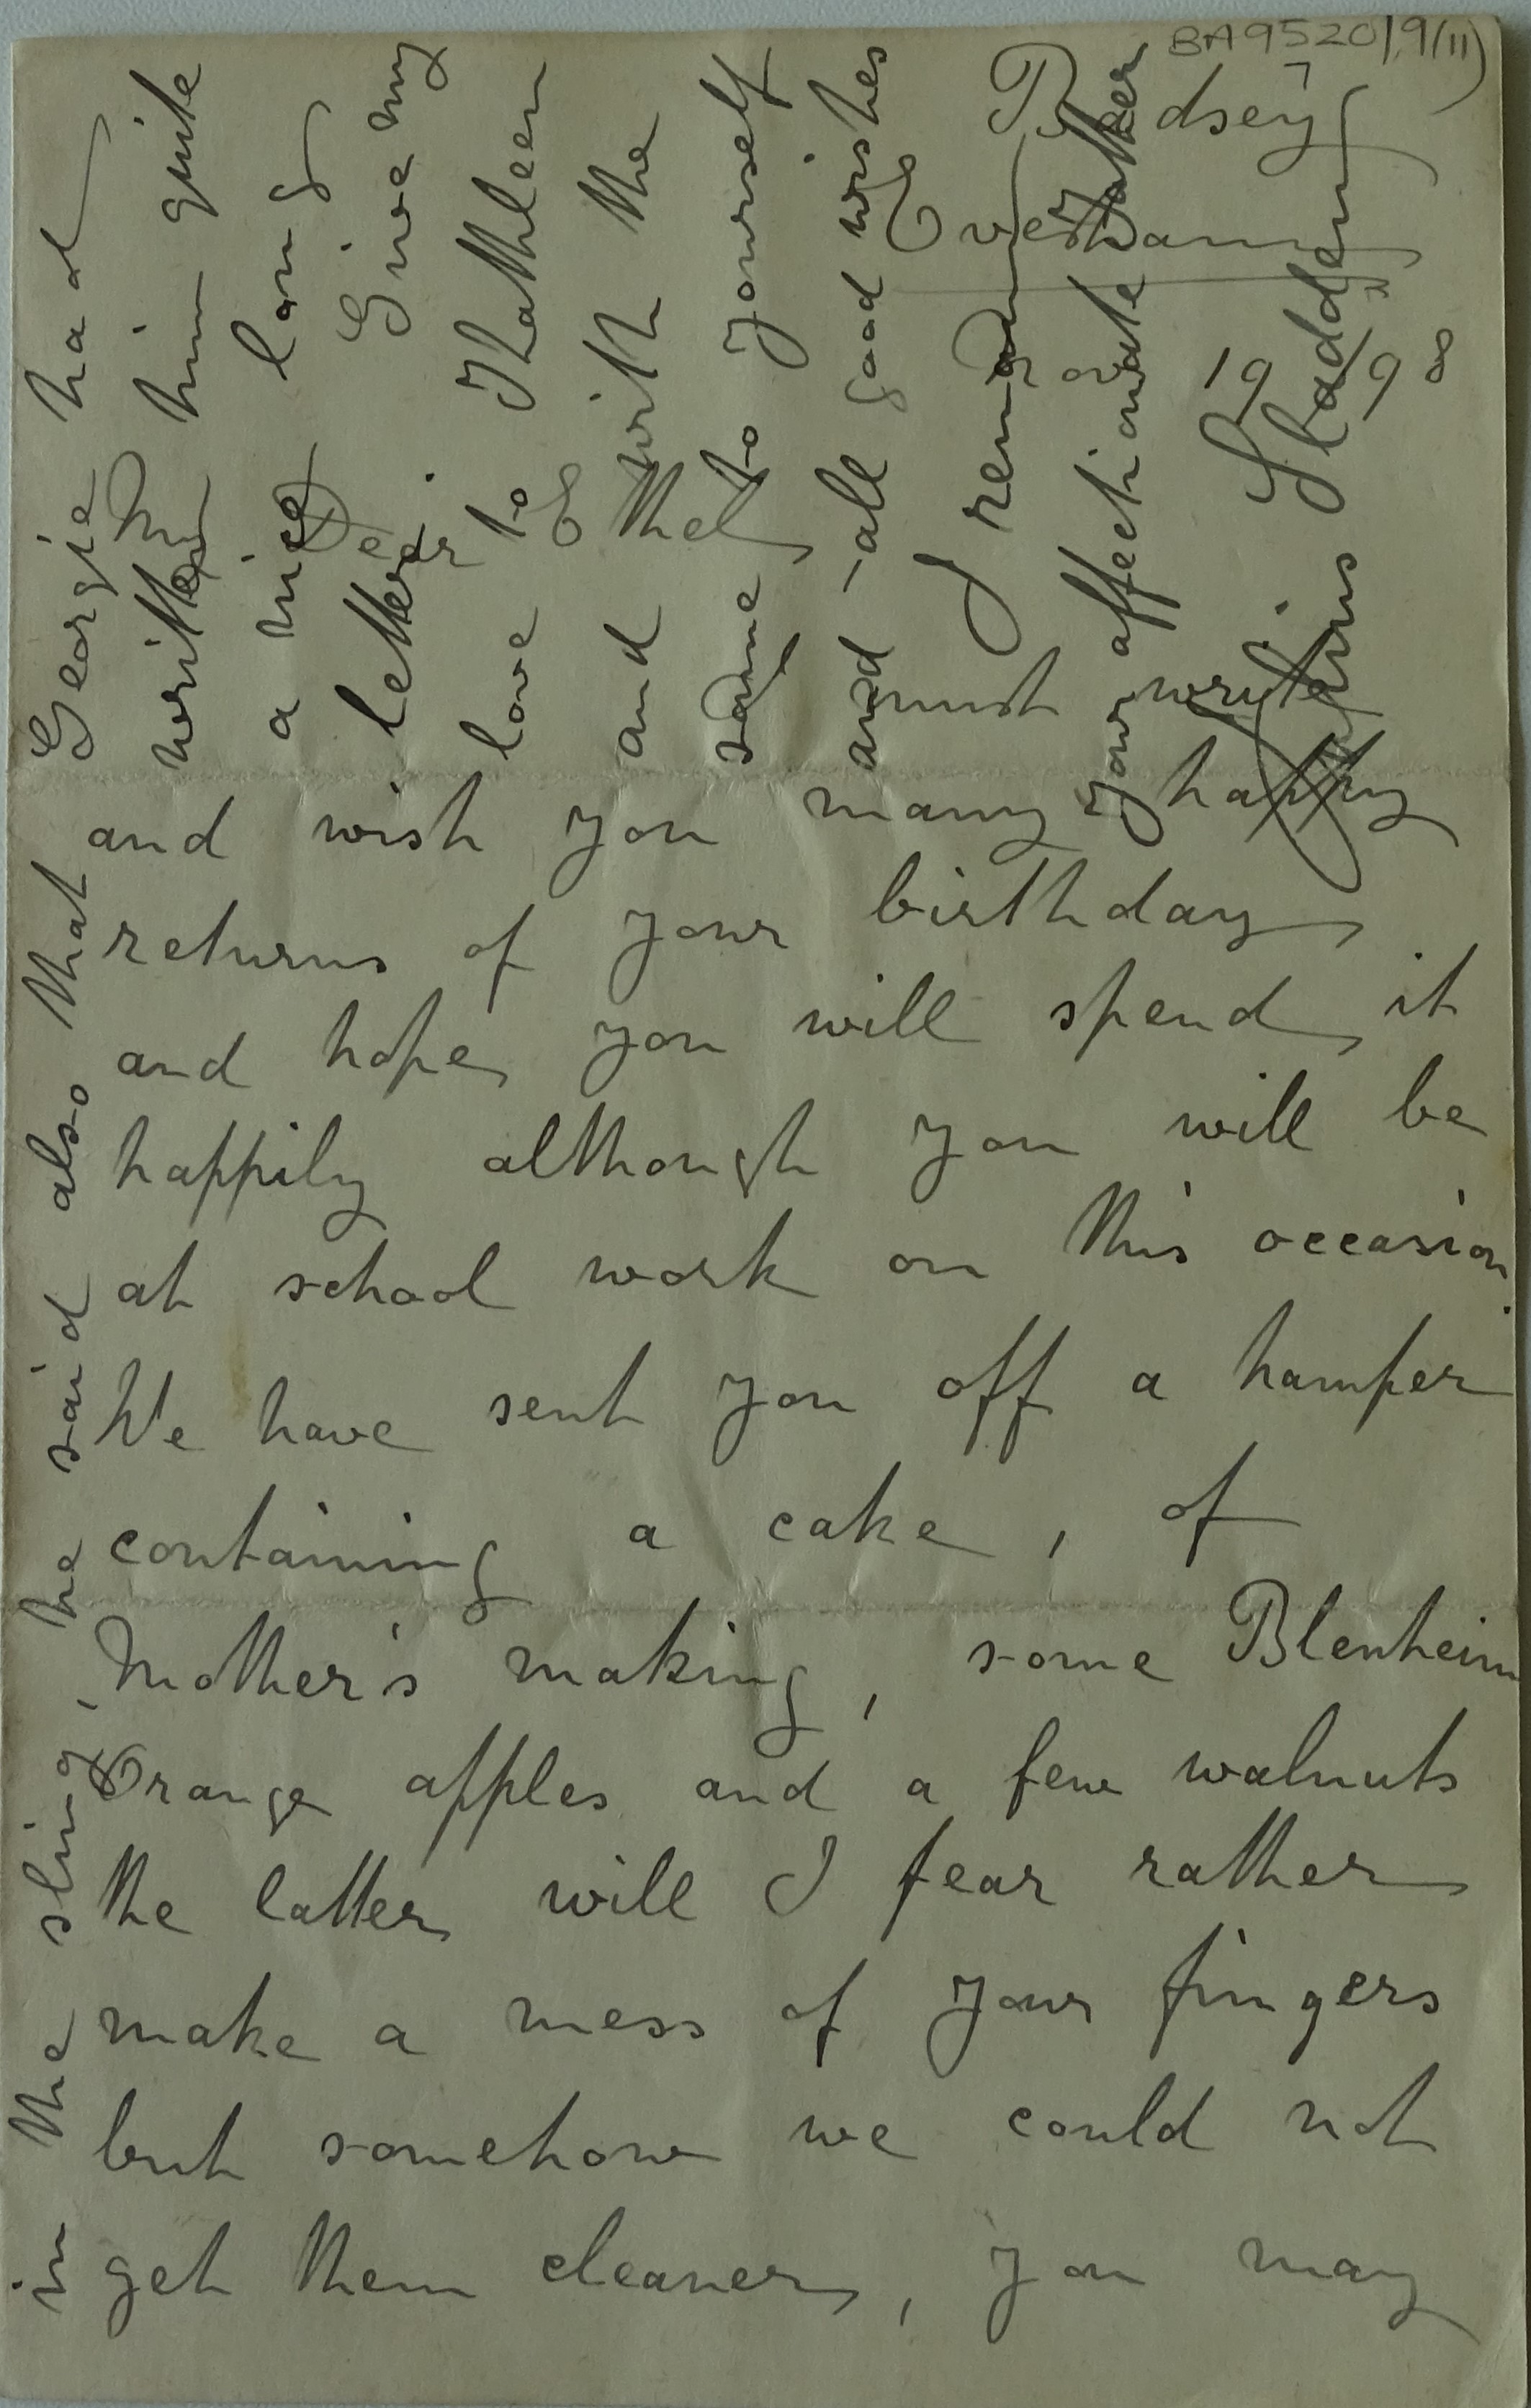 BA9520/9/(11)
Badsey
Evesham
Nov 19/98
My Dear Ethel
I must write
and wish you many happy
returns of your birthday
and hope you will spend it
happily although you will be
at school work on this occasion.
We have sent you off a hamper
containing a cake, of
Mother's making, some Blenheim
Orange apples and a few walnuts
the latter will I fear rather
make a mess of your fingers
but somehow we could not
get them cleaner, you may
in the sling, he said also that Georgie had
written him quite
a nice long
letter. Give my
love to Kathleen
and with the
same to yourself
and all good wishes
I remain
your affectionate Father
Julius Sladden